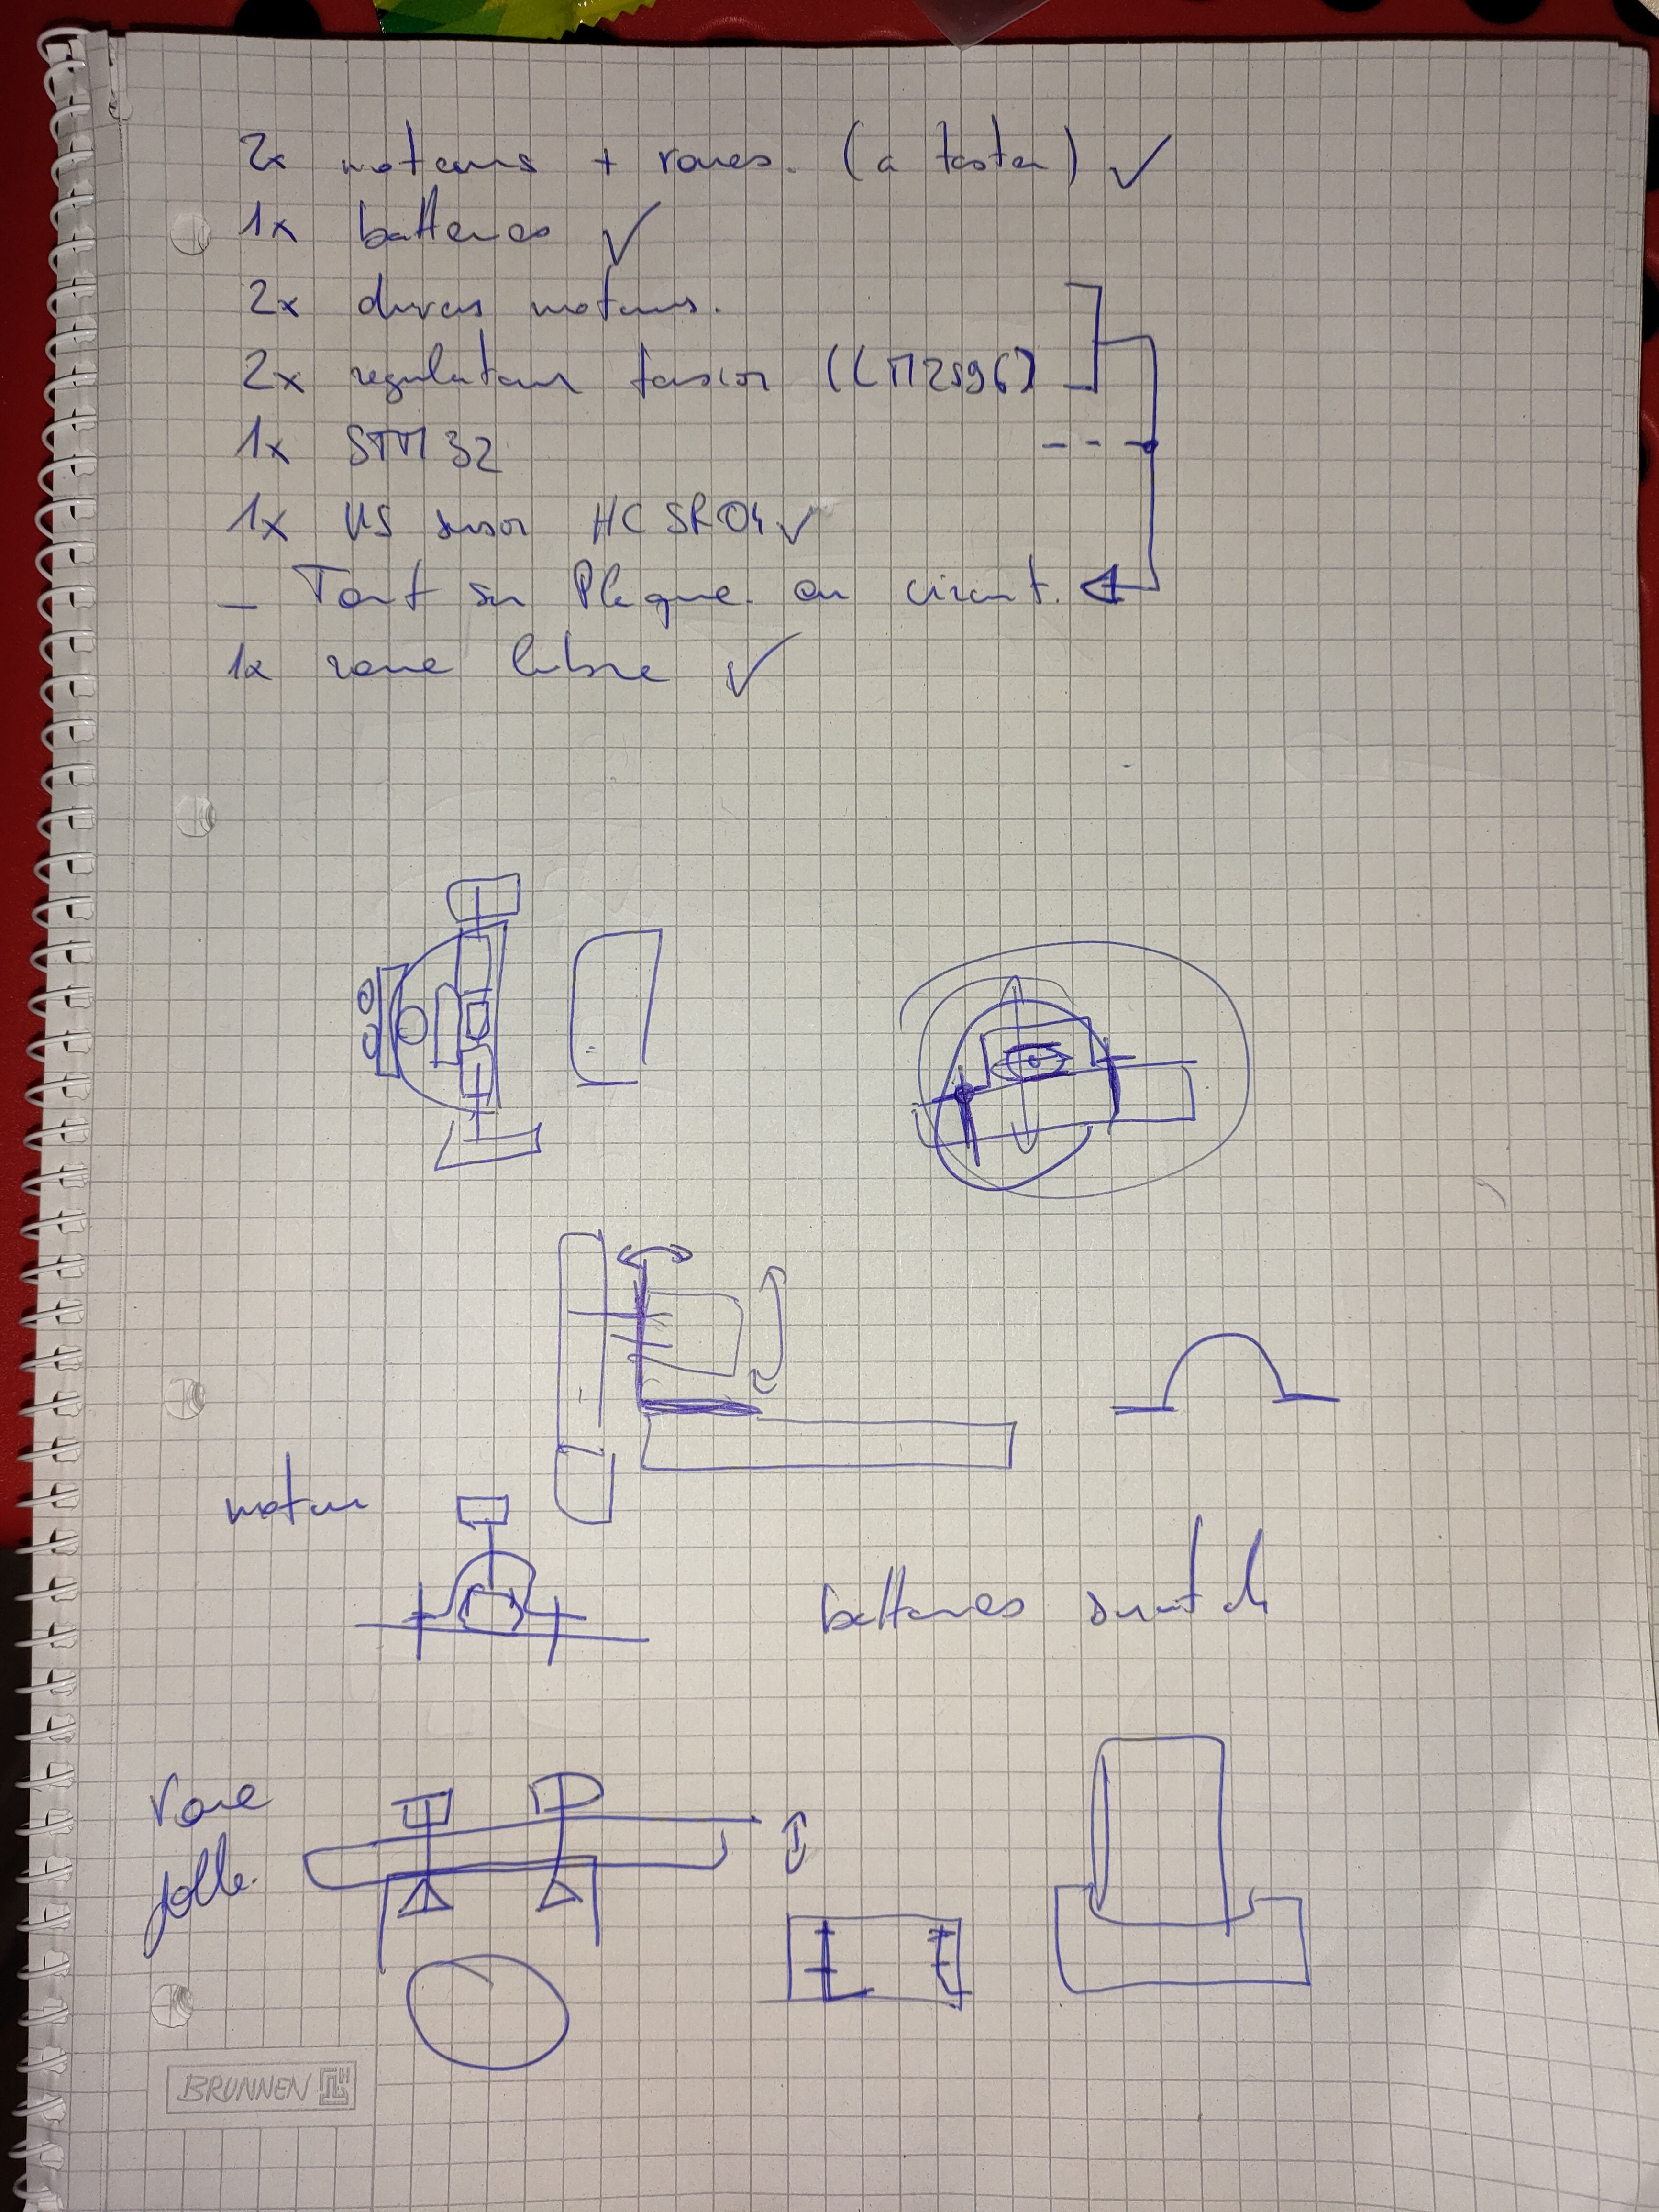 2x moteurs + roues. (a tester) ✓
1x batteries ✓
2x drivers moteurs.
2x regulateur tension (LM2596)
1x STM32
1x US sensor HC SR04 ✓
- Tout sur Plaque ou circuit.
1x roue libre ✓
moteur
batteries switch
roue
folle.
BRUNNEN